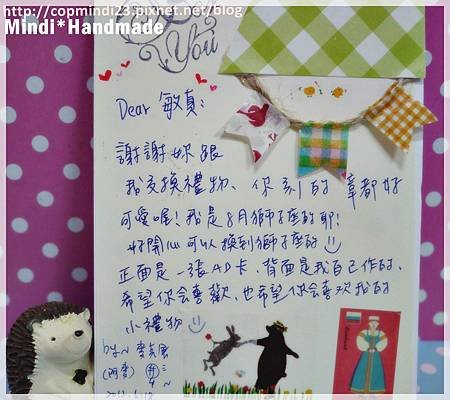 http://copmindi23.pixnet.net/blog
Mindi*Handmade
You
Dear 敏真：
謝謝妳跟
我交換禮物、你刻的章都好
可愛喔！我是8月獅子座的耶！
好開心可以換到獅子座的
正面是一張AD卡，背面是我自己作的、
希望你會喜歡，也希望你會喜歡我的
小禮物
by~